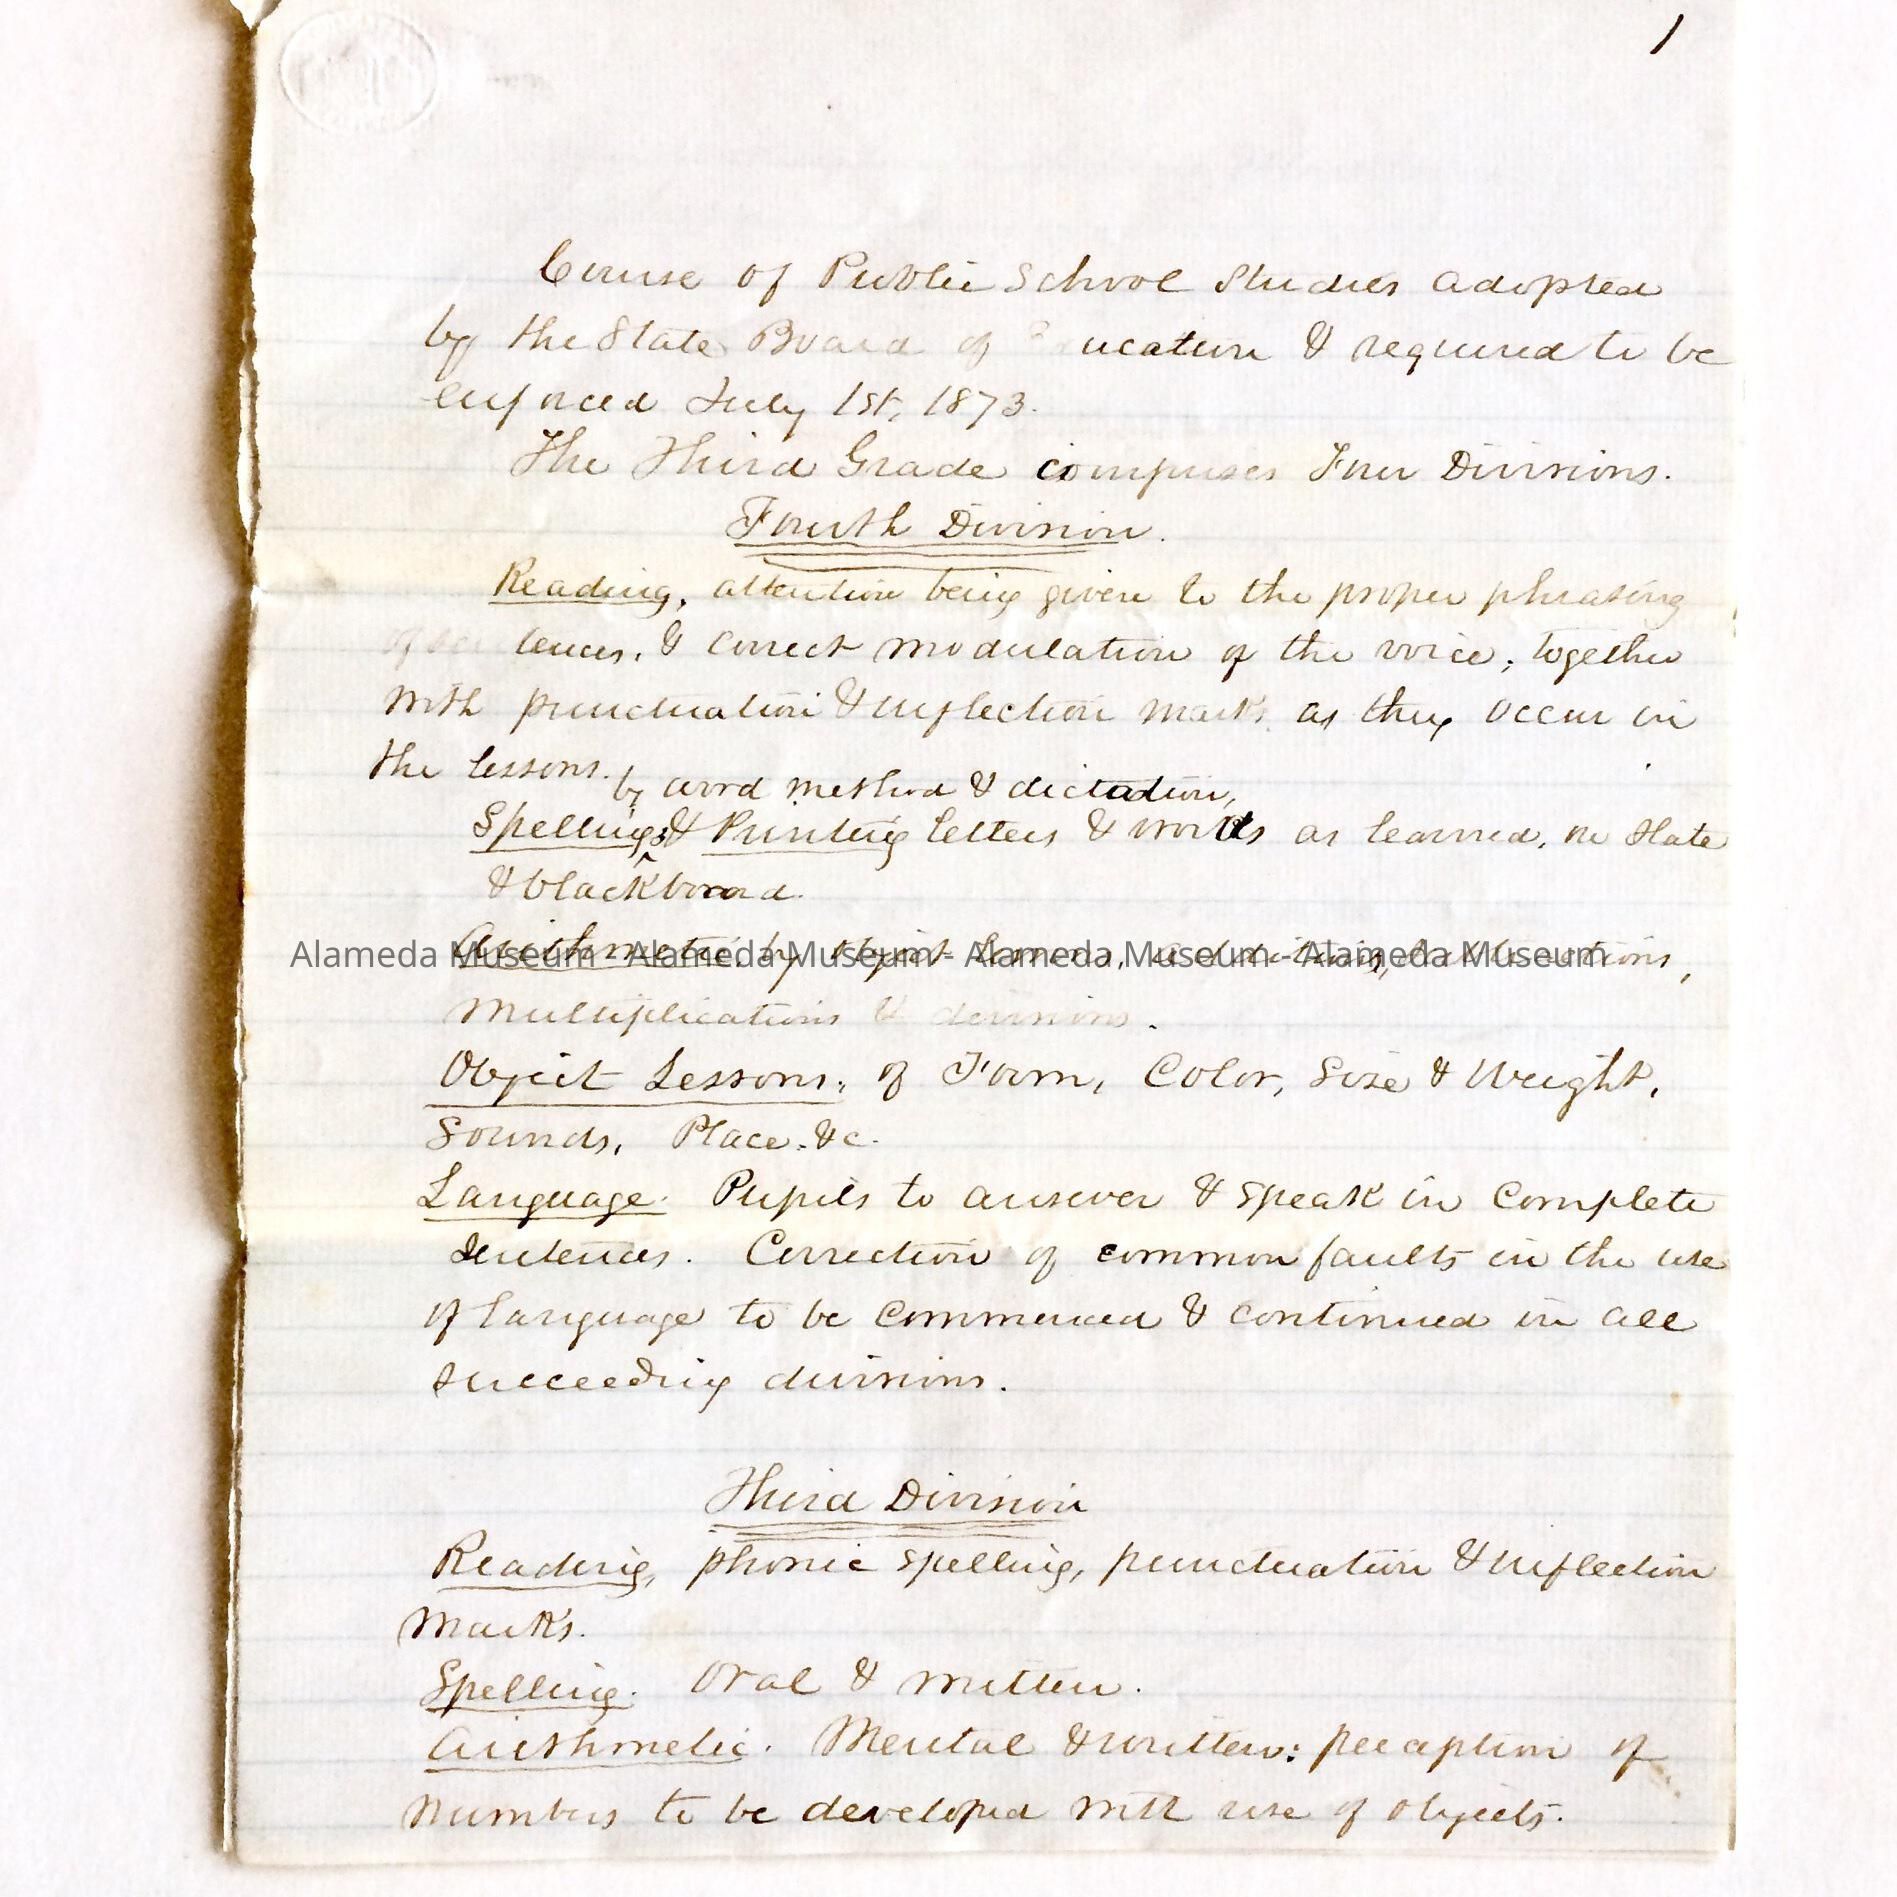 1
Course of Public School Studies adopted
by the State Board of ucation & required to be
enforced July 1st, 1873.
The Third Grade comprises Four Divisions.
Fourth Division.
Reading, attention being given to the proper phrasing
of sentences, & correct modulation of the voice; together
with punctuation & inflection marks as they occur in
the lessons.
by word method & dictation,
Spelling, & Printing letters & words as learned, on slate
& blackboard.
Arithmetic, by object lessons, additions, subtractions,
Alameda Museum - Alameda Museum - Alameda Museum - Alameda Museum
Multiplications & divisions.
Object Lessons, of Form, Color, Size & Weight,
Sounds, Place, &c.
Language. Pupils to answer & speak in complete
sentences. Correction of common faults in the use
of language to be commenced & continued in all
succeeding divisions.
Third Division
Reading, phonic spelling, punctuation & inflection
marks.
Spelling. Oral & written.
Arithmetic. Mental & written: perception of
numbers to be developed with use of objects.